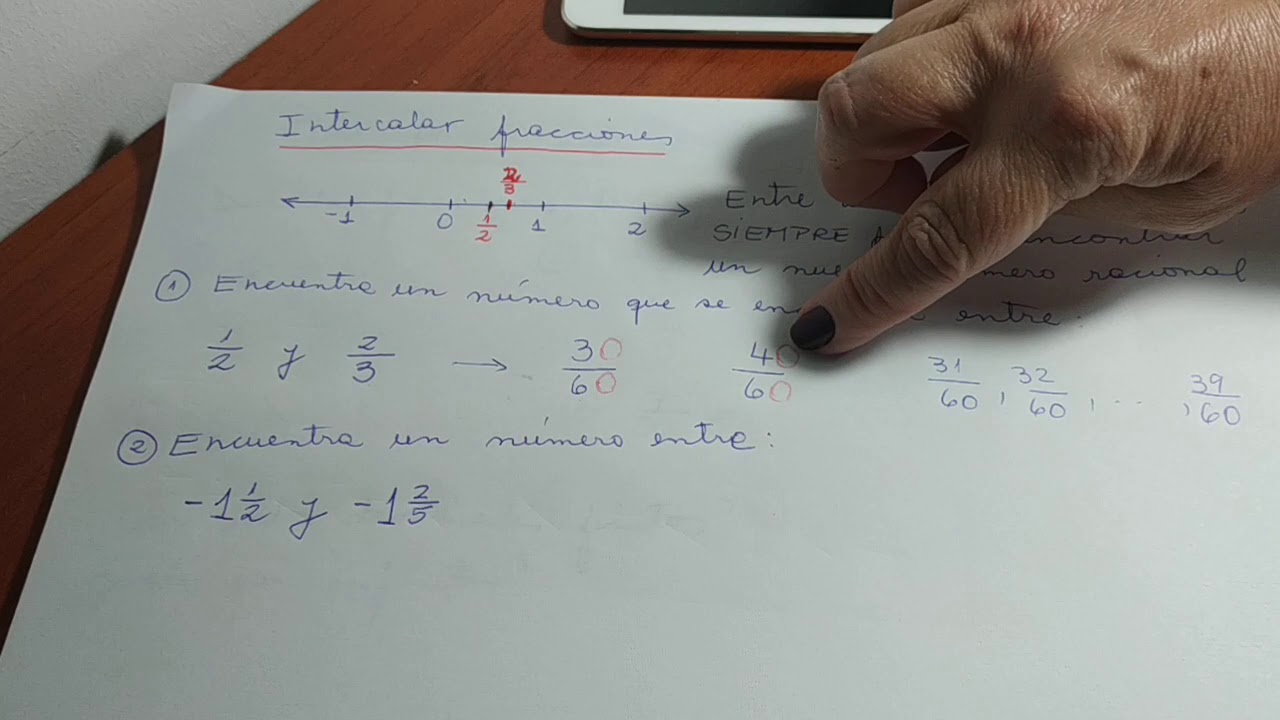 Intercalar fracciones
2/3
-1 0 1/2 1 2
Entre
SIEMPRE encontrar
un racional
① Encuentra un número que se entre:
1/2 y 2/3 → 30/60 40/60 31/60, 32/60, ... , 39/60
② Encuentra un número entre:
-1 1/2 y -1 2/5